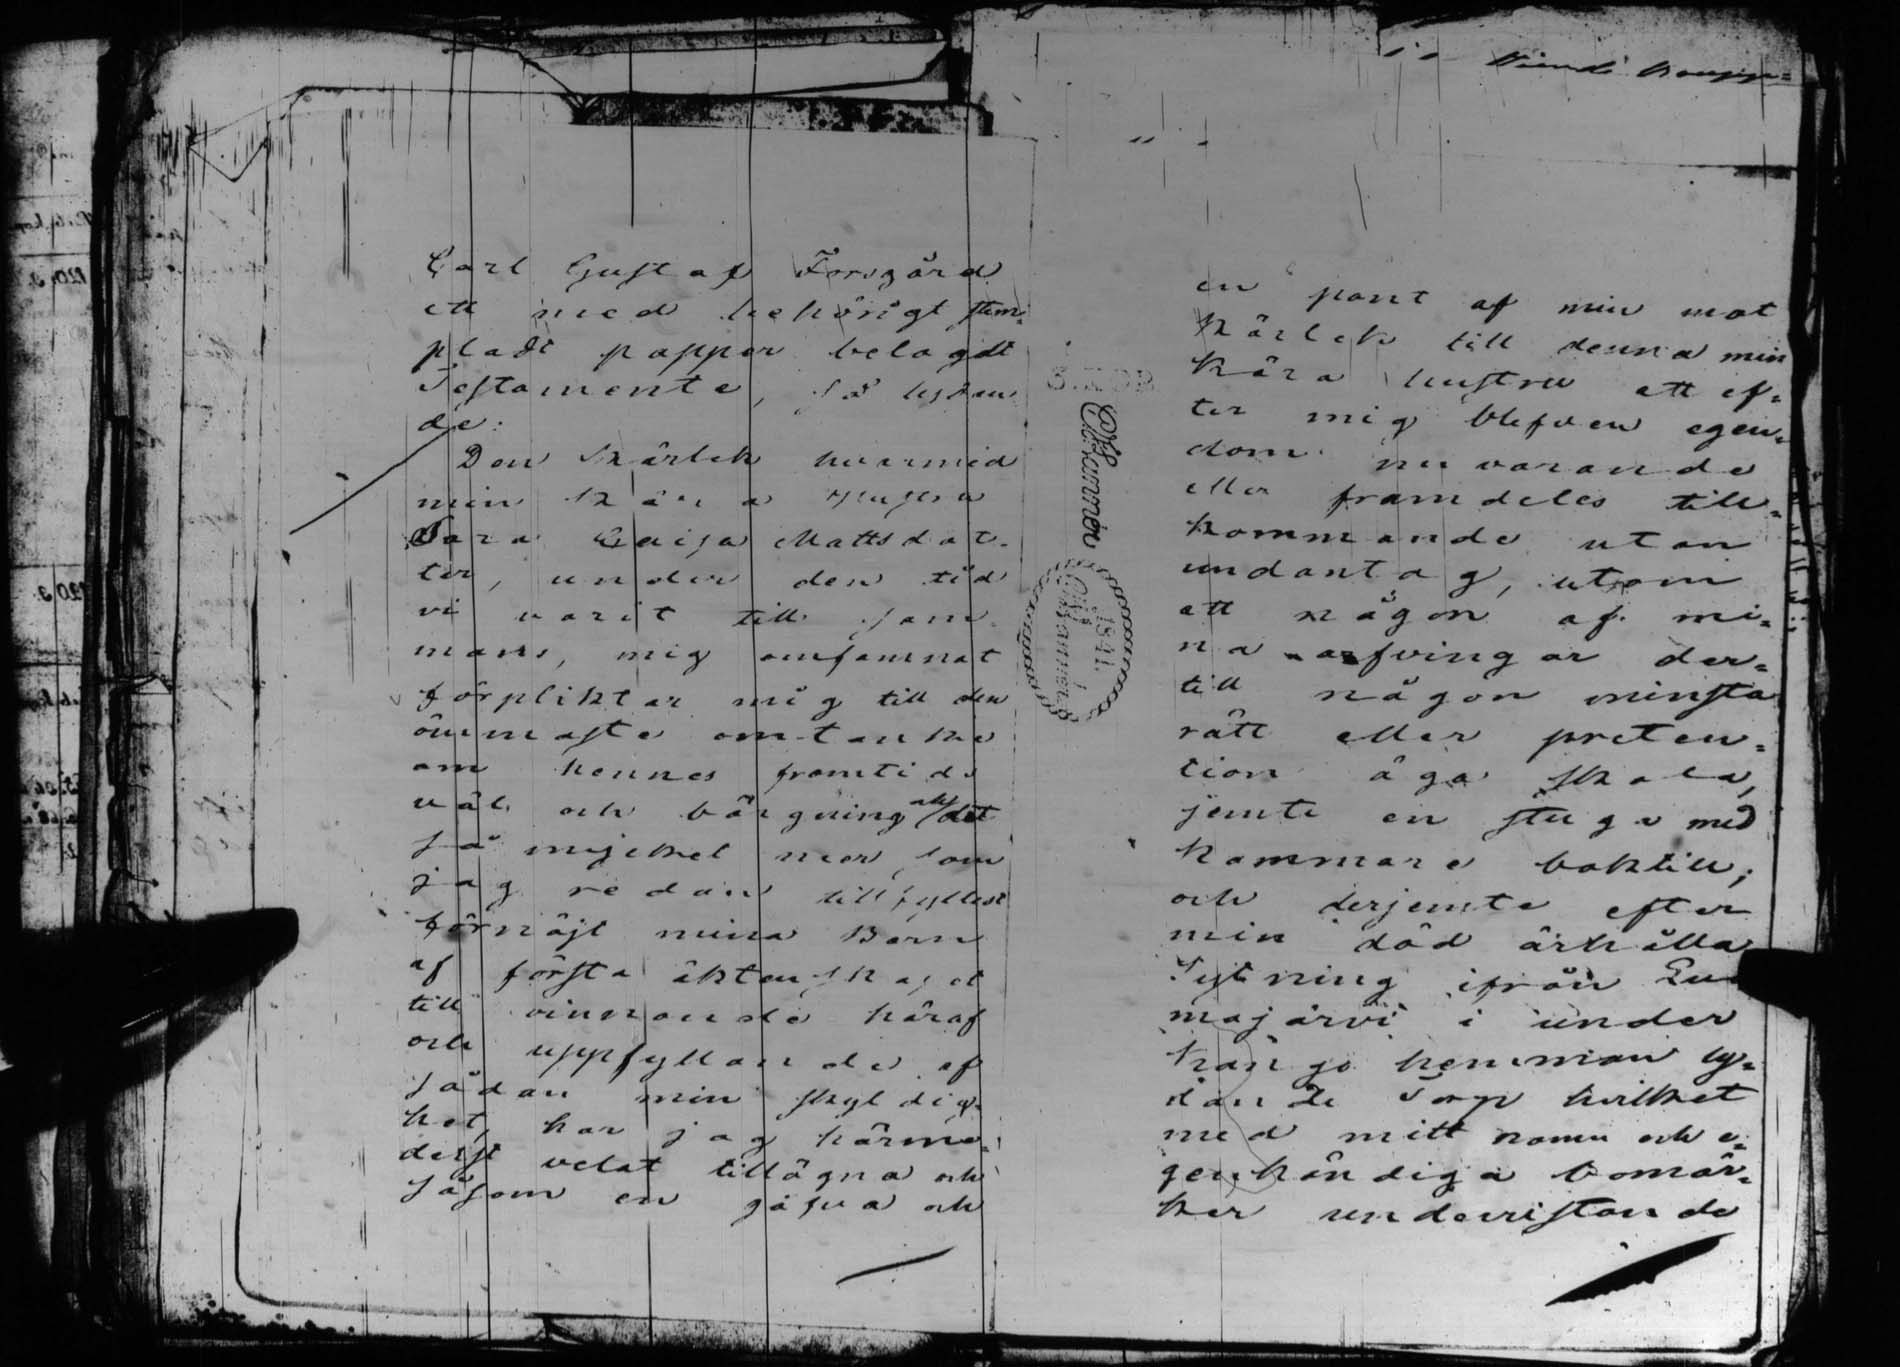 Carl Gustaf Forsgård
ett med behörigt stem¬
pladt papper belagdt
Testamente, så lydan
de:
Den kärlek hvarmed
min kära Hustru
Sara Caisa Mattsdot¬
ter, under den tid
vi varit till sam
mans, mig omfamnat
förpliktar mig till den
ömmaste omtanke
om hennes framtids
väl och bärgning och det
så mycket mer, som
jag redan tillfyllest
förnöjt mina Barn
af första äktenskapet
till vinnande häraf
och uppfyllande af
sådan min skyldig¬
het, har jag härme¬
delst velat tillägna och
såsom en gåfva och
en pant af min mot
kärlek till denna min
kära hustru att ef¬
ter mig blefven egen¬
dom nuvarande
eller framdeles till¬
kommande utan
undantag, utom
att någon af mi¬
na arfvingar der¬
till någon minsta
rätt eller preten¬
tion äga skola,
jemte en stuga med
kammare baktill;
och derjemte efter
min död ärhålla
Sytning ifrån
majärvi i under
Kango hemman ly¬
dande Torp hvilket
med mitt namn och e¬
genhändiga bomär¬
ker undervistande
1841.